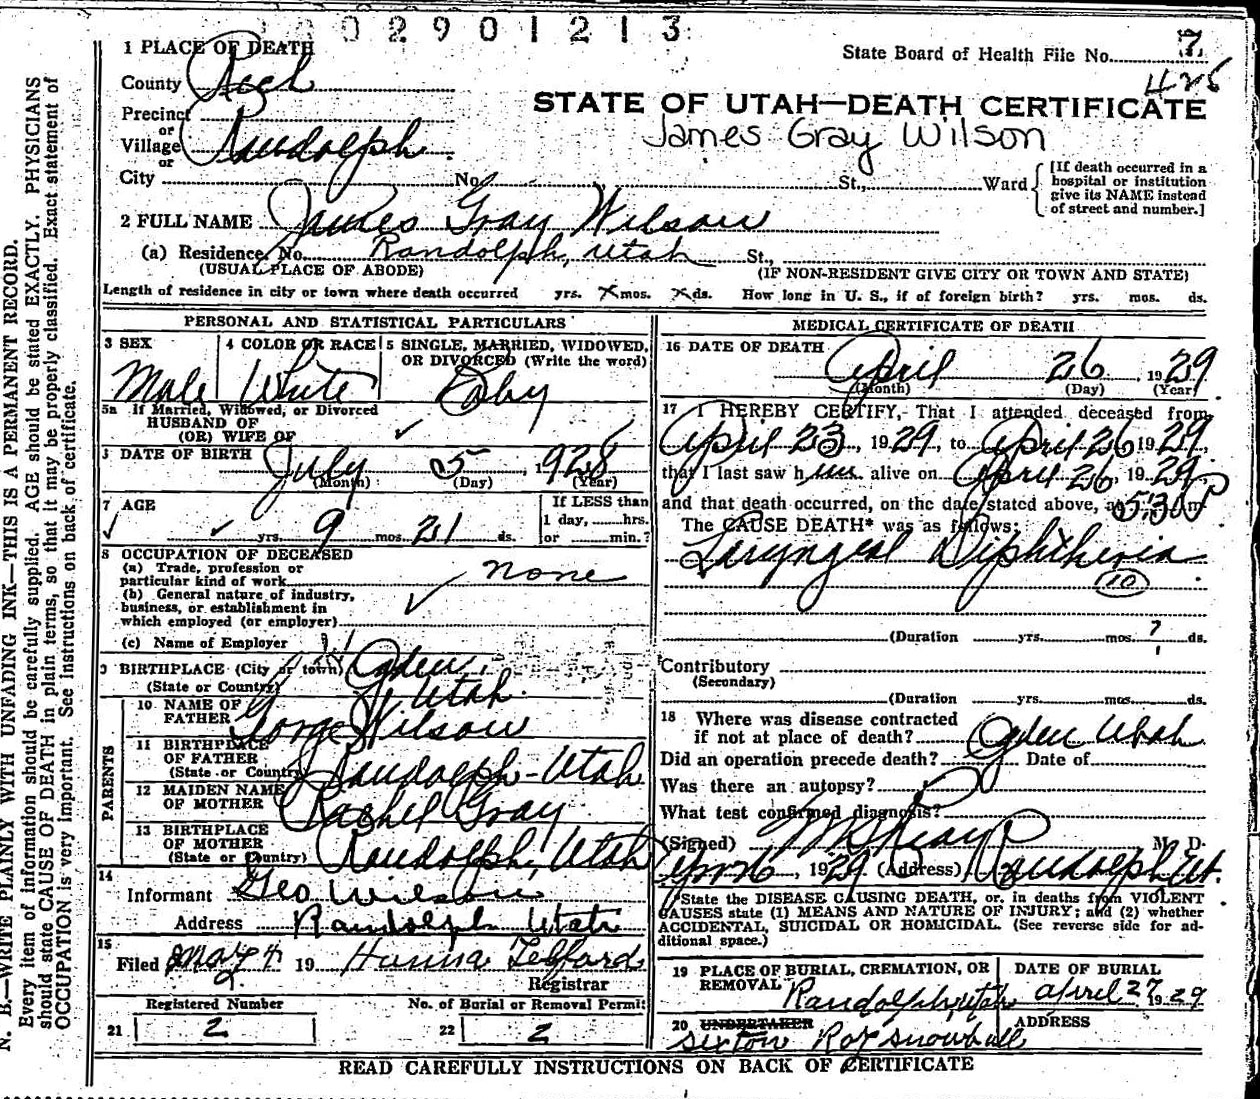 0 2 9 0 1 2 1 3
7
State Board of Health File No.
STATE OF UTAH—DEATH CERTIFICATE
James Gray Wilson
1 PLACE OF DEATH
County Rich
Precinct
or
Village Randolph
or
City No. St., Ward
[If death occurred in a
hospital or institution
give its NAME instead
of street and number.]
2 FULL NAME James Gray Wilson
(a) Residence, No. Randolph, Utah St.,
(USUAL PLACE OF ABODE) (IF NON-RESIDENT GIVE CITY OR TOWN AND STATE)
Length of residence in city or town where death occurred yrs. mos. ds. How long in U. S., if of foreign birth? yrs. mos. ds.
PERSONAL AND STATISTICAL PARTICULARS
3 SEX 4 COLOR OR RACE 5 SINGLE, MARRIED, WIDOWED,
OR DIVORCED (Write the word)
Male White Baby
5a If Married, Widowed, or Divorced
HUSBAND OF
(OR) WIFE OF
DATE OF BIRTH July 5, 1928
(Month) (Day) (Year)
7 AGE If LESS than
1 day, hrs.
yrs. 9 mos. 21 ds. or min.?
8 OCCUPATION OF DECEASED
(a) Trade, profession or
particular kind of work none
(b) General nature of industry,
business, or establishment in
which employed (or employer)
(c) Name of Employer
9 BIRTHPLACE (City or town) Ogden,
(State or Country) Utah.
PARENTS
10 NAME OF
FATHER Wilson
11 BIRTHPLACE
OF FATHER
(State or Country) Randolph-Utah
12 MAIDEN NAME
OF MOTHER Rachel Gray
13 BIRTHPLACE
OF MOTHER
(State or Country) Randolph, Utah
14
Informant Geo Wilson
Address Randolph Utah
15
Filed May 4 19 Hanna Telford
Registrar
Registered Number No. of Burial or Removal Permit
21 2 22 2
MEDICAL CERTIFICATE OF DEATH
16 DATE OF DEATH April 26, 1929
(Month) (Day) (Year)
17 I HEREBY CERTIFY, That I attended deceased from
April 23, 1929, to April 26 1929,
that I last saw him alive on April 26, 1929
and that death occurred, on the date stated above, at 5:30 P m
The CAUSE DEATH* was as follows:
Laryngeal Diphtheria
10
(Duration yrs. mos. ? ds.
Contributory
(Secondary)
(Duration yrs. mos. ds.
18 Where was disease contracted
if not at place of death? Ogden Utah
Did an operation precede death? Date of
Was there an autopsy?
What test confirmed diagnosis?
(Signed) M. D.
1929 (Address) Randolph Ut.
*State the DISEASE CAUSING DEATH, or, in deaths from VIOLENT
CAUSES state (1) MEANS AND NATURE OF INJURY; and (2) whether
ACCIDENTAL, SUICIDAL OR HOMICIDAL. (See reverse side for ad-
ditional space.)
19 PLACE OF BURIAL, CREMATION, OR DATE OF BURIAL
REMOVAL Randolph, Utah april 27 1929
20 UNDERTAKER ADDRESS
sexton Roy Snowball
READ CAREFULLY INSTRUCTIONS ON BACK OF CERTIFICATE
N. B.—WRITE PLAINLY WITH UNFADING INK—THIS IS A PERMANENT RECORD.
Every item of information should be carefully supplied. AGE should be stated EXACTLY. PHYSICIANS
should state CAUSE OF DEATH in plain terms, so that it may be properly classified. Exact statement of
OCCUPATION is very important. See instructions on back of certificate.